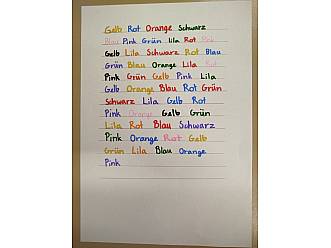 Gelb Rot Orange Schwarz
Blau Pink Grün Lila Rot Pink
Gelb Lila Schwarz Rot Blau
Grün Blau Orange Lila Rot
Pink Grün Gelb Pink Lila
Gelb Orange Blau Rot Grün
Schwarz Lila Gelb Rot
Pink Orange Gelb Grün
Lila Rot Blau Schwarz
Pink Orange Rot Gelb
Grün Lila Blau Orange
Pink